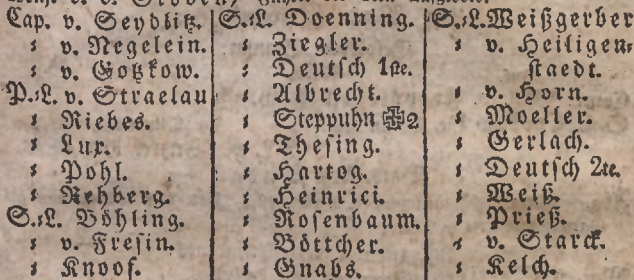 Cap. v. Seydlitz.
⸗ v. Negelein.
⸗ v. Gotzkow.
P.⸗L. v. Straelau
⸗ Riebes.
⸗ Lux.
⸗ Pohl.
⸗ Rehberg.
S.⸗L. Böhling.
⸗ v. Fresin.
⸗ Knoof.
S.⸗L. Doenning.
⸗ Ziegler.
⸗ Deutsch 1ste.
⸗ Albrecht.
⸗ Steppuhn ✠2
⸗ Thesing.
⸗ Hartog.
⸗ Heinrici.
⸗ Rosenbaum.
⸗ Böttcher.
⸗ Gnabs.
S.⸗L. Weißgerber
⸗ v. Heiligen⸗
staedt.
⸗ v. Horn.
⸗ Moeller.
⸗ Gerlach.
⸗ Deutsch 2te.
⸗ Weiß.
⸗ Prieß.
⸗ v. Starck.
⸗ Kelch.